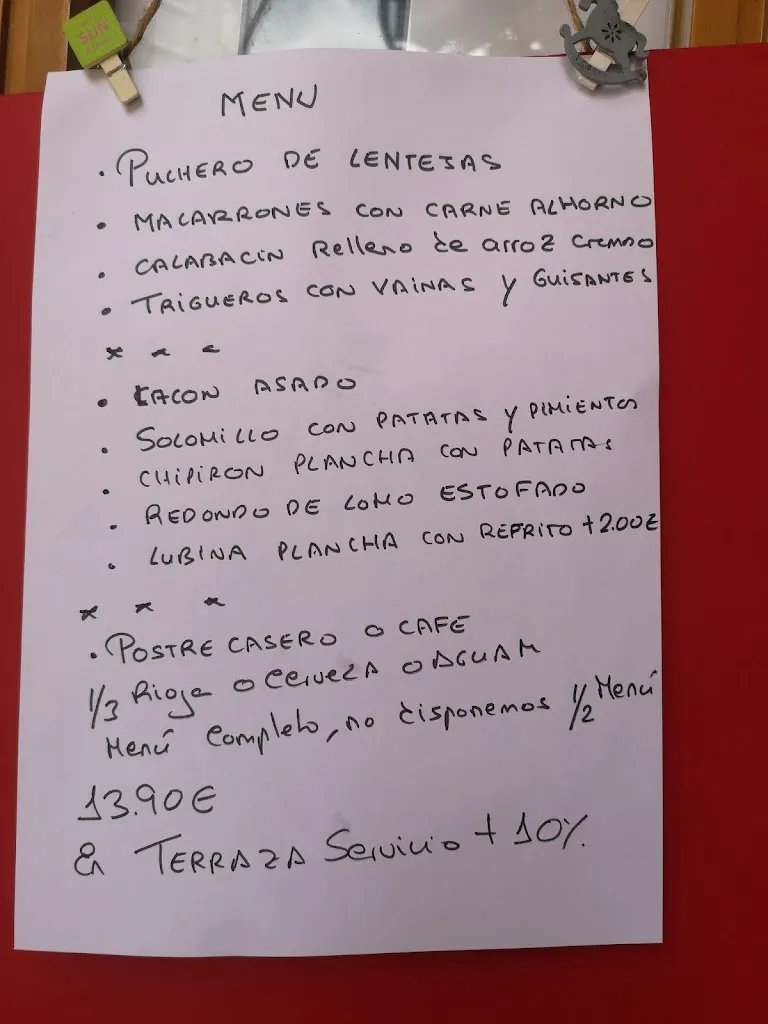 SUN
MENU
• PUCHERO DE LENTEJAS
• MACARRONES CON CARNE ALHORNO
• CALABACIN Relleno de arroz cremoso
• TRIGUEROS CON VAINAS Y GUISANTES
* * *
• LACON ASADO
• SOLOMILLO CON PATATAS Y PIMIENTOS
• CHIPIRON PLANCHA CON PATATAS
• REDONDO DE LOMO ESTOFADO
• LUBINA PLANCHA CON REFRITO +2.00€
* * *
• POSTRE CASERO O CAFE
1/3 Rioja o Cerveza o AGUA M
Menú Completo, no disponemos 1/2 Menú
13.90€
En TERRAZA Servicio + 10%